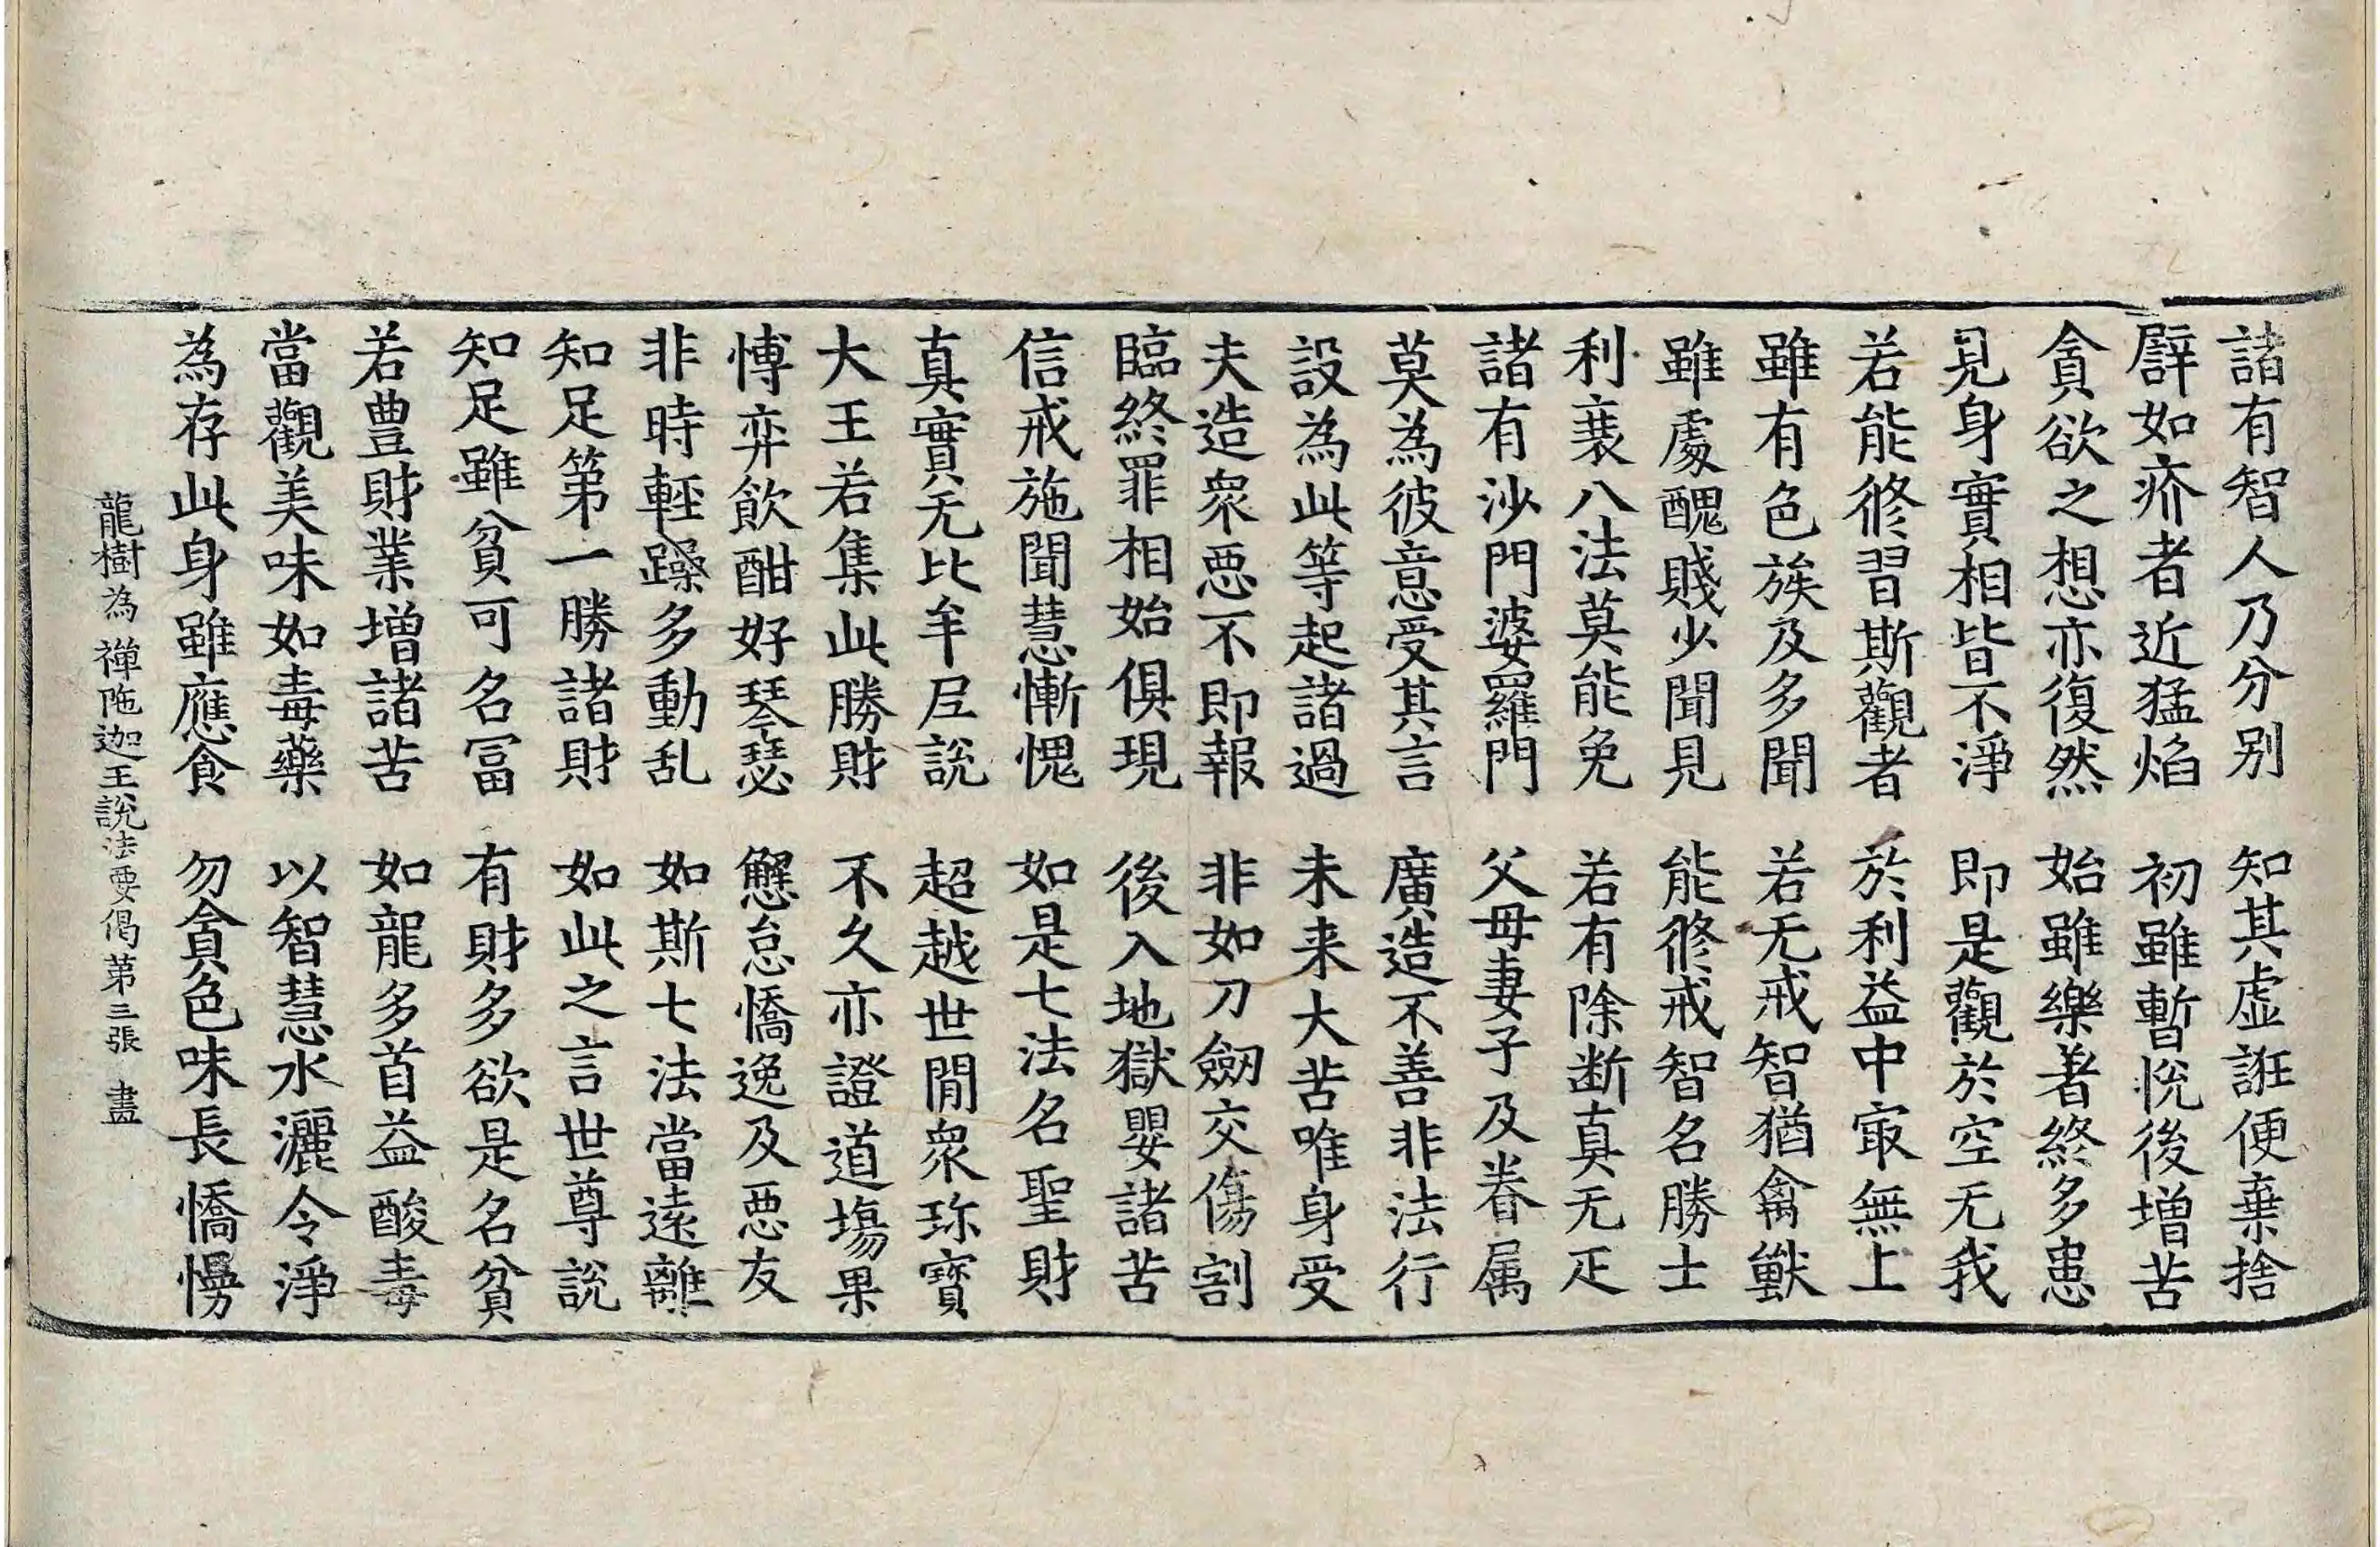 諸有智人乃分別　知其虛誑便棄捨
譬如疥者近猛焰　初雖暫悅後增苦
貪欲之想亦復然　始雖樂著終多患
見身實相皆不淨　即是觀於空无我
若能修習斯觀者　於利益中㝡無上
雖有色族及多聞　若无戒智猶禽獸
雖處醜賤少聞見　能修戒智名勝士
利衰八法莫能免　若有除断真无疋
諸有沙門婆羅門　父母妻子及眷属
莫為彼意受其言　廣造不善非法行
設為此等起諸過　未来大苦唯身受
夫造衆惡不即報　非如刀劒交傷割
臨終罪相始俱現　後入地獄嬰諸苦
信戒施聞慧慚愧　如是七法名聖財
真實无比牟尼說　超越世閒衆珎寶
大王若集此勝財　不久亦證道場果
博弈飲酣好琴瑟　懈怠憍逸及惡友
非時輕躁多動乱　如斯七法當遠離
知足第一勝諸財　如此之言世尊說
知足雖貧可名冨　有財多欲是名貧
若豊財業增諸苦　如龍多首益酸毒
當觀美味如毒藥　以智慧水灑令淨
為存此身雖應食　勿貪色味長憍慢
龍樹為禪陁迦王說法要偈第三張　盡